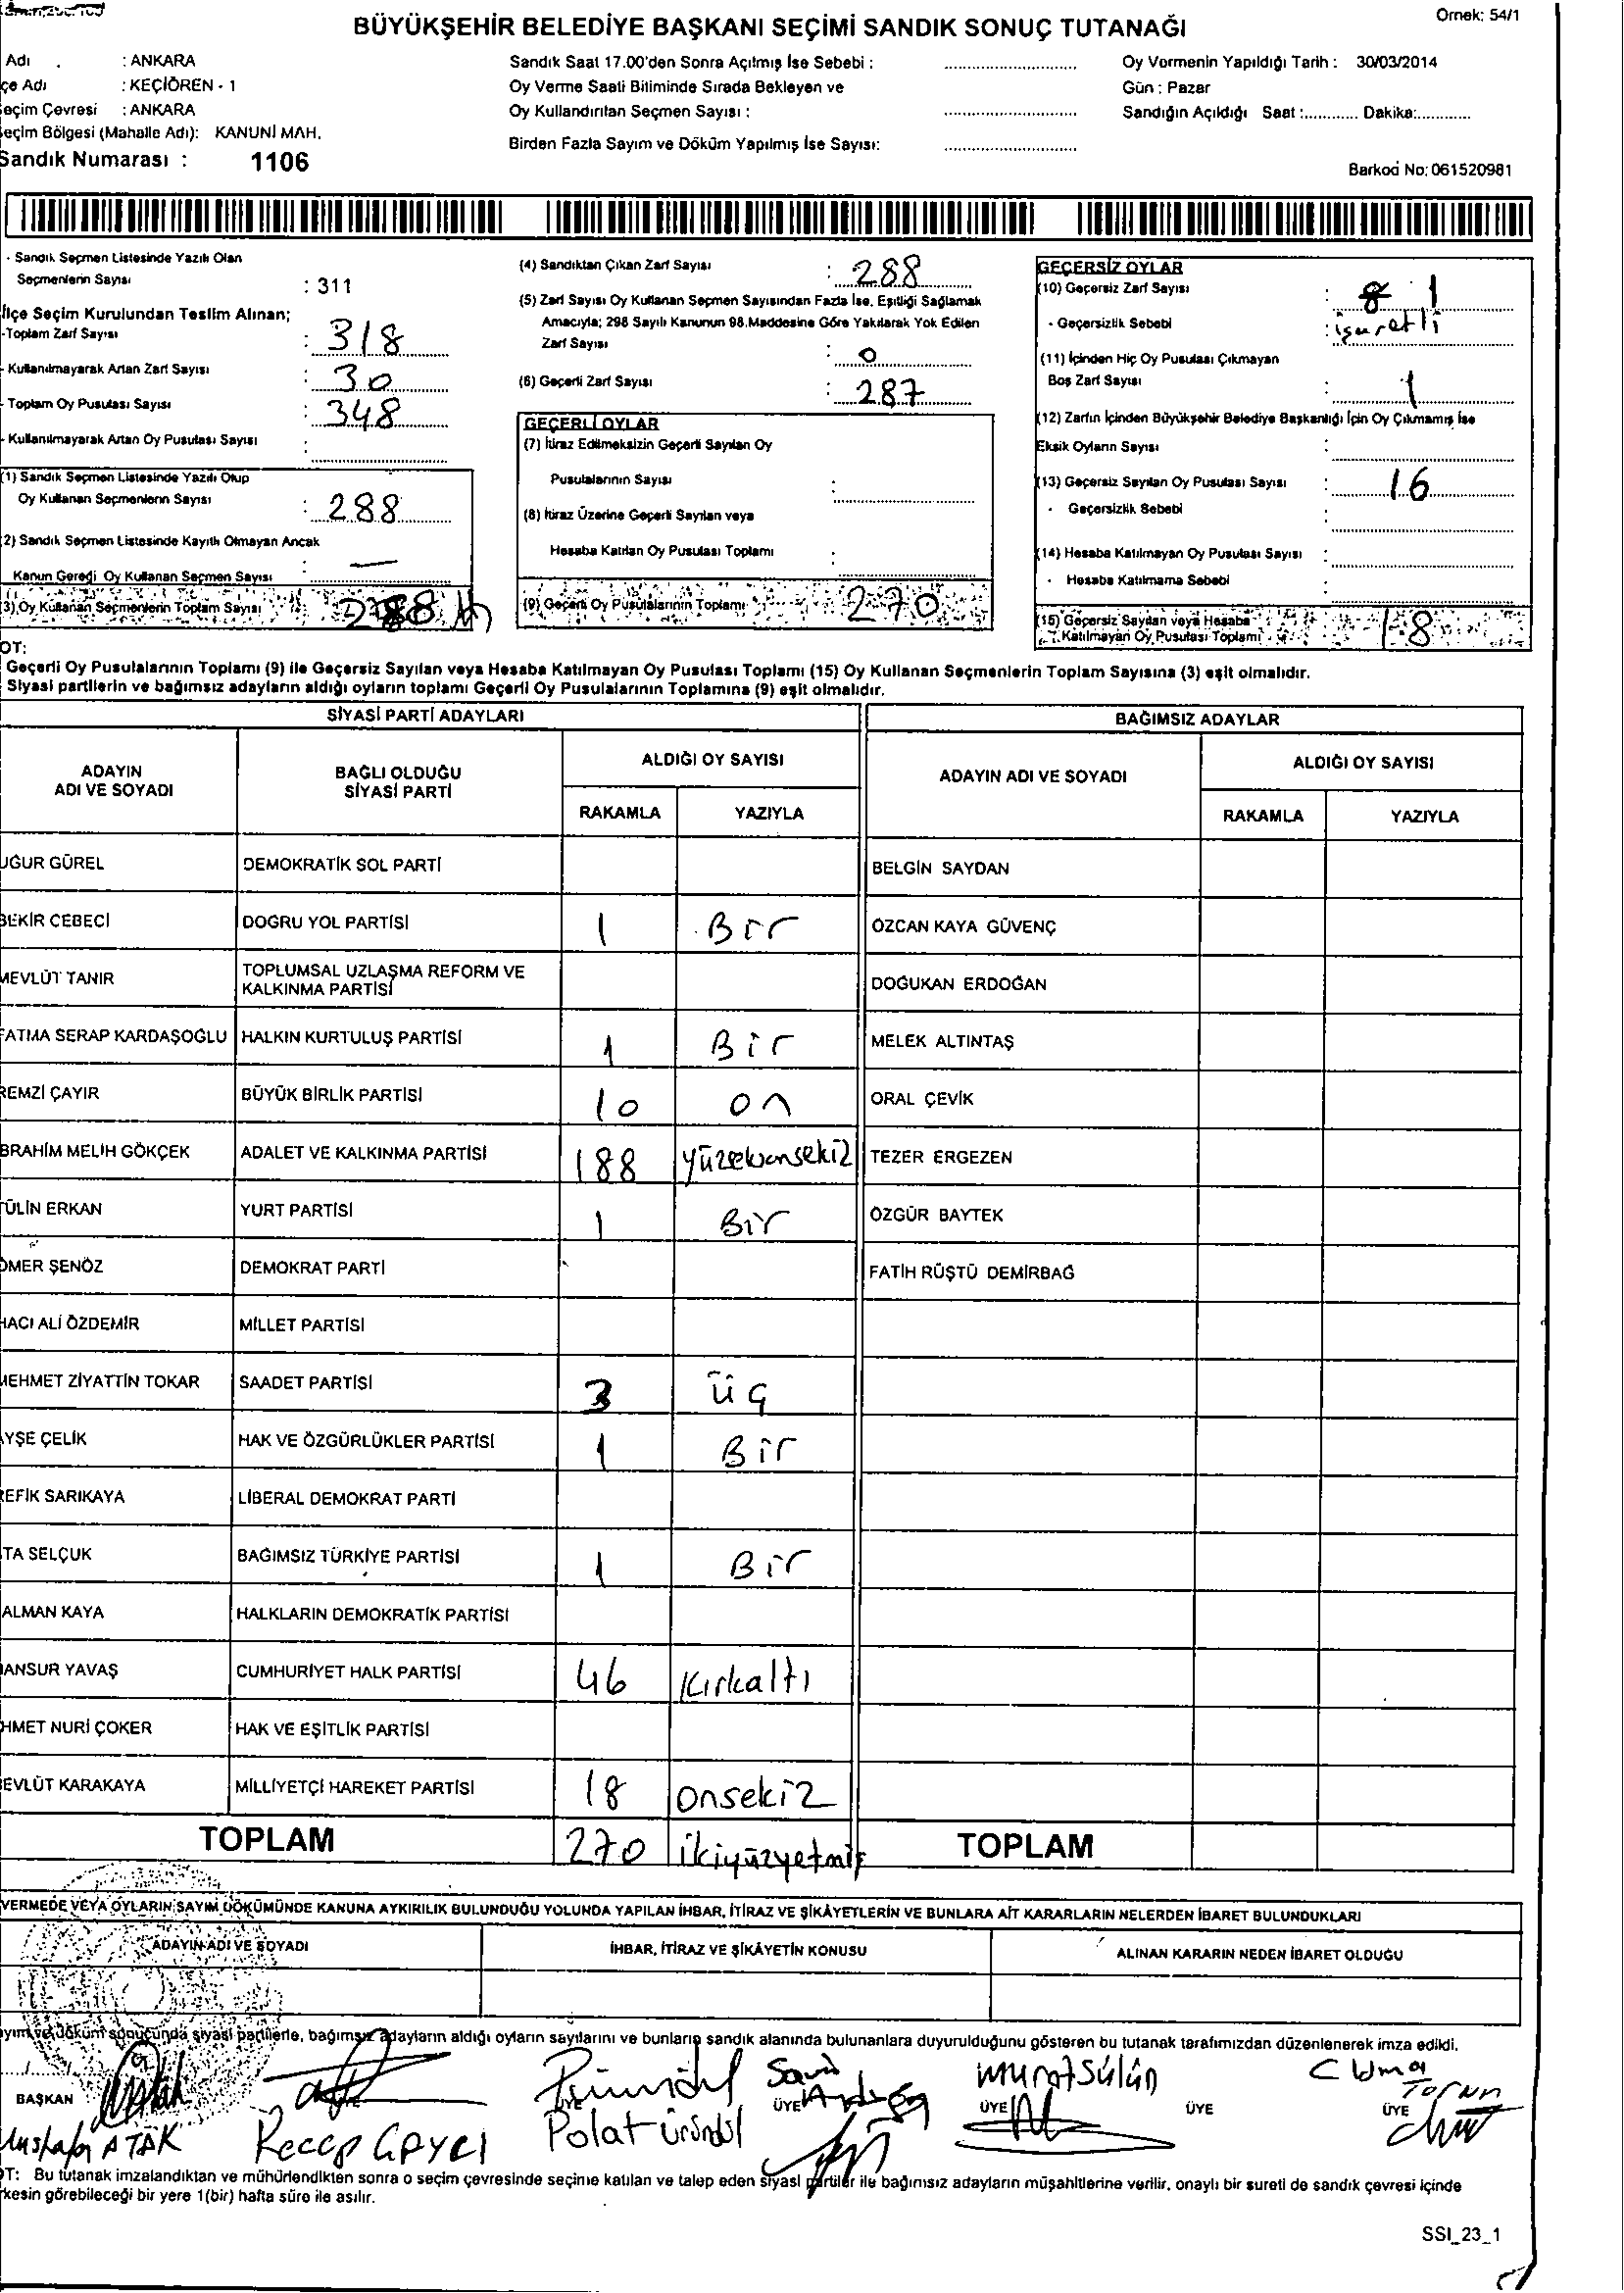 BÜYÜKŞEHİR BELEDİYE BAŞKANI SEÇİMİ SANDIK SONUÇ TUTANAĞI
Örnek: 54/1
Adı : ANKARA
çe Adı : KEÇİÖREN - 1
eçim Çevresi : ANKARA
eçim Bölgesi (Mahalle Adı): KANUNİ MAH.
Sandık Numarası : 1106
Sandık Saat 17.00'den Sonra Açılmış İse Sebebi :
Oy Verme Saati Bitiminde Sırada Bekleyen ve
Oy Kullandırılan Seçmen Sayısı :
Birden Fazla Sayım ve Döküm Yapılmış İse Sayısı:
Oy Vermenin Yapıldığı Tarih : 30/03/2014
Gün : Pazar
Sandığın Açıldığı Saat :............ Dakika:............
Barkod No: 061520981
- Sandık Seçmen Listesinde Yazılı Olan
Seçmenlerin Sayısı : 311
İlçe Seçim Kurulundan Teslim Alınan;
-Toplam Zarf Sayısı : 318
- Kullanılmayarak Artan Zarf Sayısı : 30
- Toplam Oy Pusulası Sayısı : 348
- Kullanılmayarak Artan Oy Pusulası Sayısı :
(1) Sandık Seçmen Listesinde Yazılı Olup
Oy Kullanan Seçmenlerin Sayısı : 288
(2) Sandık Seçmen Listesinde Kayıtlı Olmayan Ancak
Kanun Gereği Oy Kullanan Seçmen Sayısı : —
(3) Oy Kullanan Seçmenlerin Toplam Sayısı : 288
(4) Sandıktan Çıkan Zarf Sayısı : 288
(5) Zarf Sayısı Oy Kullanan Seçmen Sayısından Fazla İse, Eşitliği Sağlamak
Amacıyla; 298 Sayılı Kanunun 98.Maddesine Göre Yakılarak Yok Edilen
Zarf Sayısı : 0
(6) Geçerli Zarf Sayısı : 287
GEÇERLİ OYLAR
(7) İtiraz Edilmeksizin Geçerli Sayılan Oy
Pusulalarının Sayısı :
(8) İtiraz Üzerine Geçerli Sayılan veya
Hesaba Katılan Oy Pusulası Toplamı :
(9) Geçerli Oy Pusulalarının Toplamı : 270
GEÇERSİZ OYLAR
(10) Geçersiz Zarf Sayısı : 1
- Geçersizlik Sebebi : işaretli
(11) İçinden Hiç Oy Pusulası Çıkmayan
Boş Zarf Sayısı : 1
(12) Zarfın İçinden Büyükşehir Belediye Başkanlığı İçin Oy Çıkmamış İse
Eksik Oyların Sayısı :
(13) Geçersiz Sayılan Oy Pusulası Sayısı : 16
- Geçersizlik Sebebi :
(14) Hesaba Katılmayan Oy Pusulası Sayısı :
- Hesaba Katılmama Sebebi :
(15) Geçersiz Sayılan veya Hesaba
Katılmayan Oy Pusulası Toplamı : 18
OT:
Geçerli Oy Pusulalarının Toplamı (9) ile Geçersiz Sayılan veya Hesaba Katılmayan Oy Pusulası Toplamı (15) Oy Kullanan Seçmenlerin Toplam Sayısına (3) eşit olmalıdır.
Siyasi partilerin ve bağımsız adayların aldığı oyların toplamı Geçerli Oy Pusulalarının Toplamına (9) eşit olmalıdır.
SİYASİ PARTİ ADAYLARI
BAĞIMSIZ ADAYLAR
ADAYIN ADI VE SOYADI
BAĞLI OLDUĞU SİYASİ PARTİ
ALDIĞI OY SAYISI
RAKAMLA YAZIYLA
ADAYIN ADI VE SOYADI
ALDIĞI OY SAYISI
RAKAMLA YAZIYLA
UĞUR GÜREL DEMOKRATİK SOL PARTİ BELGİN SAYDAN
BEKİR CEBECİ DOĞRU YOL PARTİSİ 1 Bir ÖZCAN KAYA GÜVENÇ
MEVLÜT TANIR TOPLUMSAL UZLAŞMA REFORM VE KALKINMA PARTİSİ DOĞUKAN ERDOĞAN
FATMA SERAP KARDAŞOĞLU HALKIN KURTULUŞ PARTİSİ 1 Bir MELEK ALTINTAŞ
REMZİ ÇAYIR BÜYÜK BİRLİK PARTİSİ 10 on ORAL ÇEVİK
BRAHİM MELİH GÖKÇEK ADALET VE KALKINMA PARTİSİ 188 yüzseksensekiz TEZER ERGEZEN
TÜLİN ERKAN YURT PARTİSİ 1 Bir ÖZGÜR BAYTEK
ÖMER ŞENÖZ DEMOKRAT PARTİ FATİH RÜŞTÜ DEMİRBAĞ
HACI ALİ ÖZDEMİR MİLLET PARTİSİ
MEHMET ZİYATTİN TOKAR SAADET PARTİSİ 3 üç
AYŞE ÇELİK HAK VE ÖZGÜRLÜKLER PARTİSİ 1 Bir
REFİK SARIKAYA LİBERAL DEMOKRAT PARTİ
TA SELÇUK BAĞIMSIZ TÜRKİYE PARTİSİ 1 Bir
ALMAN KAYA HALKLARIN DEMOKRATİK PARTİSİ
MANSUR YAVAŞ CUMHURİYET HALK PARTİSİ 46 Kırkaltı
HMET NURİ ÇOKER HAK VE EŞİTLİK PARTİSİ
EVLÜT KARAKAYA MİLLİYETÇİ HAREKET PARTİSİ 18 onsekiz
TOPLAM 270 ikiyüzyetmiş TOPLAM
VERMEDE VEYA OYLARIN SAYIM DÖKÜMÜNDE KANUNA AYKIRILIK BULUNDUĞU YOLUNDA YAPILAN İHBAR, İTİRAZ VE ŞİKÂYETLERİN VE BUNLARA AİT KARARLARIN NELERDEN İBARET BULUNDUKLARI
ADAYIN ADI VE SOYADI İHBAR, İTİRAZ VE ŞİKÂYETİN KONUSU ALINAN KARARIN NEDEN İBARET OLDUĞU
ayım ve döküm sonucunda siyasi partilerle, bağımsız adayların aldığı oyların sayılarını ve bunların sandık alanında bulunanlara duyurulduğunu gösteren bu tutanak tarafımızdan düzenlenerek imza edildi.
Murat Sülün
Cuma Torun
BAŞKAN ÜYE ÜYE ÜYE ÜYE
Mustafa ATAK Recep Polat
OT: Bu tutanak imzalandıktan ve mühürlendikten sonra o seçim çevresinde seçime katılan ve talep eden siyasi partiler ile bağımsız adayların müşahitlerine verilir, onaylı bir sureti de sandık çevresi içinde
rkesin görebileceği bir yere 1(bir) hafta süre ile asılır.
SSI_23_1